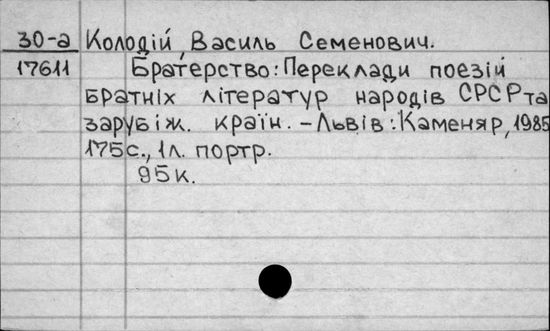 30-а Колодій, Василь Семенович.
17611 Братерство: Переклади поезій
братніх літератур народів СРСР та
зарубіж. країн. – Львів: Каменяр, 1985
175с., 1л. портр.
95к.